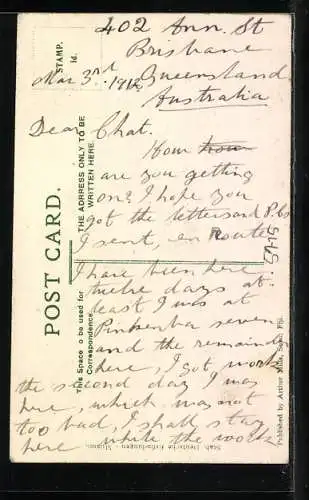 402 Ann. St
Brisbane
Mar 3rd 1912 Queensland
Australia
Dear Chat.
How how
are you getting
on? I hope you
got the letters and P.Cs
I sent, en Route
I have been here
twelve days at
least I was at
Pinkenba seven
and the remainder
here, I got work
the second day I was
here, which was not
too bad, I shall stay
here while the work
STAMP.
1d.
POST CARD.
THE ADRRESS ONLY TO BE
WRITTEN HERE.
This Space o be used for
Correspondence.
Published by Arthur Mills, Suva, Fiji.